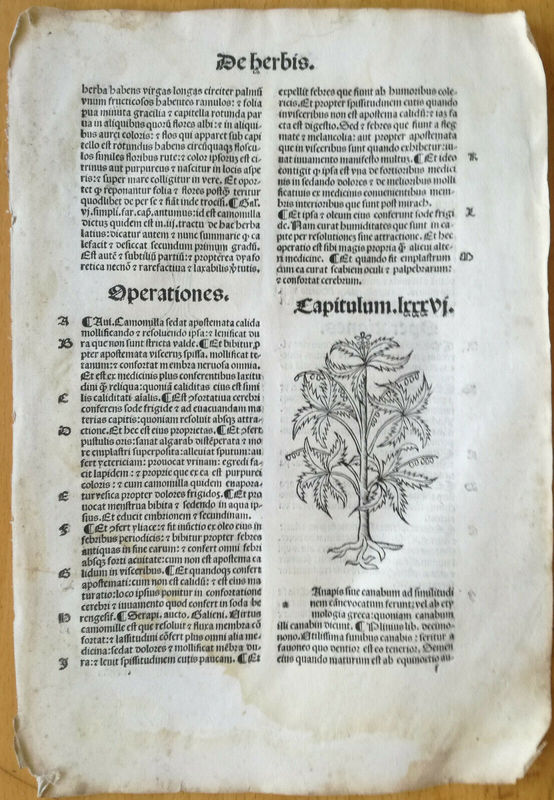 De herbis.
herba habens virgas longas circiter palmi
vnum fructicosos habentes ramulos: ⁊ folia
pua minuta gracilia ⁊ capitella rotunda par
ua in aliquibus quorū flores albi: ⁊ in aliqui⸗
bus aurei coloris: ⁊ flos qui apparet sub capi
tello est rotundus habens circūquaqꝫ floscu⸗
los similes floribus rute: ⁊ color ipsorus est ci⸗
trinus aut purpureus ⁊ nascitur in locis aspe
ris: ⁊ super mare colligitur in vere. Et opor⸗
tet ꝙ reponantur folia ⁊ flores
quodlibet de per se ⁊ fiāt inde trocisci. ¶ Gal.
vj. simpli. far. cap. id est camomilla
dictus quidem est in. iij. tractu de hac herba
latius: dicatur autem ⁊ nunc summarie ꝙ ca
lefacit ⁊ desiccat secundum primum gradū.
Est autē ⁊ subtiliū partiū: ⁊ propterea dyafo
retica necnō ⁊ rarefactiua ⁊ laxabilis ꝟtutis.
Operationes.
A ¶ Aui. Camomilla sedat apostemata calida
mollificando ⁊ resoluendo ipsa: ⁊ lenificat du
B ra que non sunt stricta valde. ¶ Et bibitur ꝓ
pter apostemata viscerus spissa. mollificat te⸗
ranimē: ⁊ confortat membra neruosa omnia.
Et est ex medicinis plus conferentibus laxitu
dini ꝙ̄ reliqua: quoniā caliditas eius est simi
C lis caliditati aīalis. ¶ Est ꝯfortatiua cerebri
conferens sode frigide ⁊ ad euacuandam ma
terias capitis: quoniam resoluit absqꝫ attra⸗
D ctione. Et hec est eius proprietas. ¶ Et ꝯfert
pustulis oris: sanat algarab distēperata ⁊ mo
re emplastri superposita: alleuiat sputum: au
fert yctericiam: prouocat vrinam: egredi fa⸗
cit lapidem: ⁊ ꝓprie que ex ea est purpurei
coloris: ⁊ cum camomilla quidem euapora⸗
E tur vesica propter dolores frigidos. ¶ Et pro
uocat menstrua bibita ⁊ sedendo in aqua ip⸗
sius. Et educit embrionem ⁊ secundinam.
F ¶ Et ꝯfert yliace: ⁊ fit inūctio ex oleo eius in
febribus periodicis: ⁊ bibitur propter febres
antiquas in fine earum: ⁊ confert omni febri
absqꝫ forti acuitate: cum non est apostema ca
G lidum in visceribus. ¶ Et quandoqꝫ confert
apostemati: cum non est calidū: ⁊ est eius ma
turatio: loco ipsius ponitur in confortatione
cerebri ⁊ iuuamento quod confert in soda be
H rengesif. ¶ Serapi. aucto. Galieni. Virtus
camomille est que resoluit ⁊ flura membra cō
fortat: ⁊ lassitudini cōfert plus omni alia me⸗
dicina: sedat dolores ⁊ mollificat mēbra du⸗
I ra: ⁊ lenit spissitudinem cutis paucam. ¶ Et
expellit febres que fiunt ab humoribus cole⸗
ricis. Et propter spissitudinem cutis quando
in visceribus non est apostema calidū: ⁊ iaꝫ fa
cta est digestio. Sed ⁊ febres que fiunt a fleg
mate ⁊ melancolia: aut propter apostemata
que in visceribus sunt quando exhibetur: iu⸗
K uat iuuamento manifesto multus. ¶ Et ideo
contigit ꝙ ipsa est vna de fortioribus medici
nis in sedando dolores ⁊ de melioribus molli
ficatiuis ex medicinis conuenientibus mem⸗
bris interioribus que sunt post mirach.
L ¶ Et ipsa ⁊ oleum eius conferunt sode frigi
de. Nam curat humiditates que sunt in ca⸗
pite per resolutionem sine attractione. Et hec
operatio est sibi magis propria ꝙ̄ alicui alte⸗
M ri medicine. ¶ Et quando fit emplastrum
cum ea curat scabiem oculi ⁊ palpebrarum:
⁊ confortat cerebrum.
Capitulum. lxxxvj.
Anapis siue canabum ad similitudi
a nem cāne vocatum ferunt: vel ab ety
mologia greca: quoniam canabum
illi canabin dicunt. ¶ Plinius lib. decimo⸗
nono. Utilissima funibus canabis: seritur a
fauoneo quo densior est eo tenerior. Semen
eius quando maturum est ab equinoctio au⸗